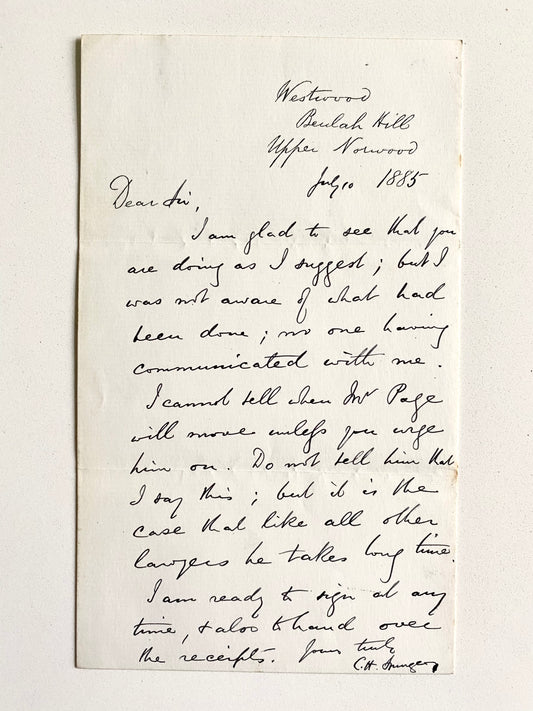 Westwood
Beulah Hill
Upper Norwood
July 10 1885
Dear Sir,
I am glad to see that you
are doing as I suggest; but I
was not aware of what had
been done; no one having
communicated with me.
I cannot tell when Mr Page
will move unless you urge
him on. Do not tell him that
I say this; but it is the
case that like all other
lawyers he takes long time.
I am ready to sign at any
time, & also to hand over
the receipts. Yours truly
C. H. Spurgeon